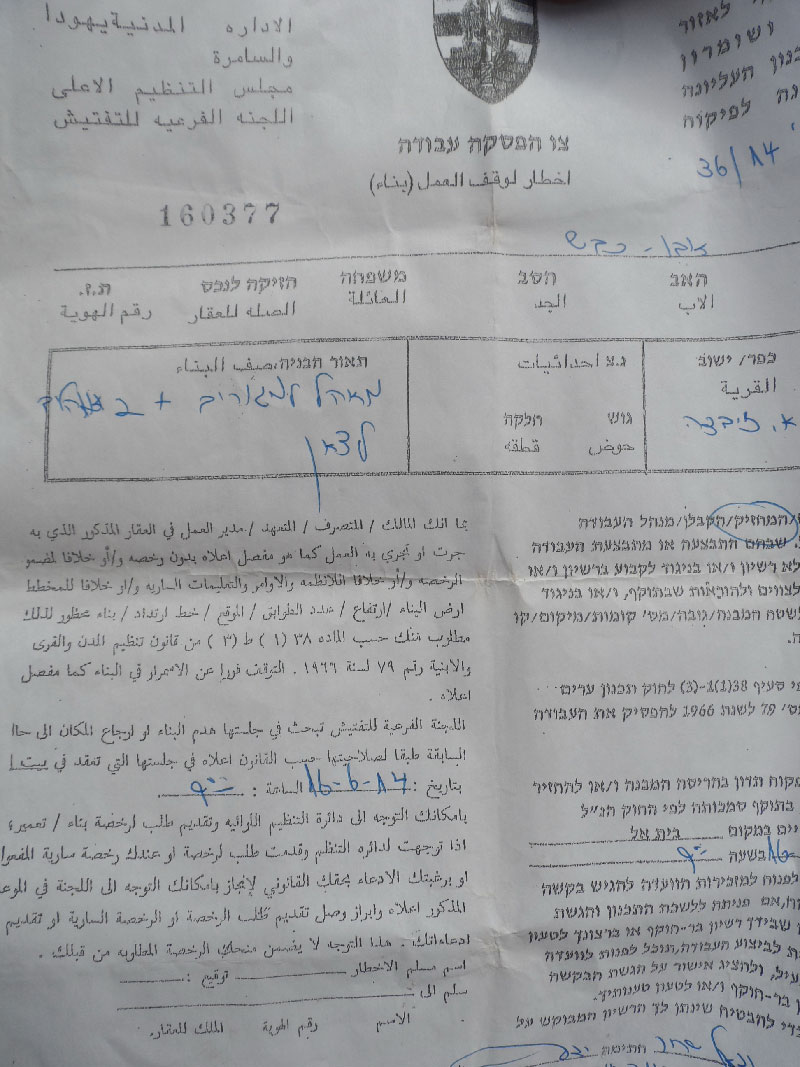 الاداره المدنية يهودا
والسامرة
مجلس التنظيم الاعلى
اللجنه الفرعيه للتفتيش
לאזור
ושומרון
העליונה
לפיקוח
צו הפסקה עבודה
اخطار لوقف العمل (بناء)
160377
האב הסב משפחה הזיקה לנכס ת.ז.
الاب الجد العائلة الصله للعقار رقم الهوية
כפר/ ישוב
القرية
נ.צ احداثيات
גוש חלקה
حوض قطعه
תאור הבניה، صيف البناء
מאהל למגורים + 2
לצאן
بما انك المالك / المتصرف / المتعهد / مدير العمل في العقار المذكور الذي به
جرت او تجري به العمل كما هو مفصل اعلاه بدون رخصه و/أو خلافا لمضمو
الرخصه و/أو خلافا للانظمه والاوامر والتعليمات الساريه و/او خلافا للمخطط
ارض البناء / ارتفاع / عدد الطوابق / الموقع / خط ارتداد / بناء محظور لذلك
مطلوب منك حسب الماده ٣٨ (١) ط (٣) من قانون تنظيم المدن والقرى
والابنية رقم ٧٩ لسنة ١٩٦٦ . التوقف فورا عن الاستمرار في البناء كما مفصل
اعلاه .
اللجنة الفرعية للتفتيش تبحث في جلستها هدم البناء او ارجاع المكان الى حاا
السابقة طبقا لصلاحيتها حسب القانون اعلاه في جلستها التي تعقد في بيت ا
بتاريخ : الساعة :
بامكانك التوجه الى دائرة التنظيم اللوائيه وتقديم طلب لرخصة بناء / تعمير،
اذا توجهت لدائره التنظيم وقدمت طلب لرخصة او عندك رخصة سارية المفعوا
او برغبتك الادعاء بحقك القانوني لإنجاز بامكانك التوجه الى اللجنة في الموعد
المذكور اعلاه وابراز وصل تقديم طلب الرخصة او الرخصة السارية او تقديم
ادعاءاتك . هذا التوجه لا يضمن منحك الرخصة المطلوبه من قبلك .
اسم مسلم الاخطار توقيع :
سلم الى
الاسم رقم الهوية المالك للعقار.
/המחזיק/הקבלן/מנהל העבודה
שבהם התבצעה או מתבצעת העבודה
לא רשיון ו/או בניגוד לקבוע ברשיון ו/או
לצווים ולהוראות שבתוקף, ו/או בניגוד
לשטח המבנה/גובה/מס' קומות/מיקום/קו
סעיף 38(1)-(3) לחוק תכנון ערים
מס' 79 לשנת 1966 להפסיק את העבודה
תדון בהריסת המבנה ו/או להחזיר
בתוקף סמכותה לפי החוק הנ"ל
במקום בית אל
בשעה
לפנות למזכירות הוועדה להגיש בקשה
אם פנית ללשכת התכנון והגשת
שבידך רשיון בר-תוקף או ברצונך לטעון
לביצוע העבודה, תוכל לפנות לוועדה
ולהציג אישור על הגשת הבקשה
בר-תוקף ו/או לטעון טענותיך.
כדי להבטיח שינתן לך הרשיון המבוקש על
חתימה